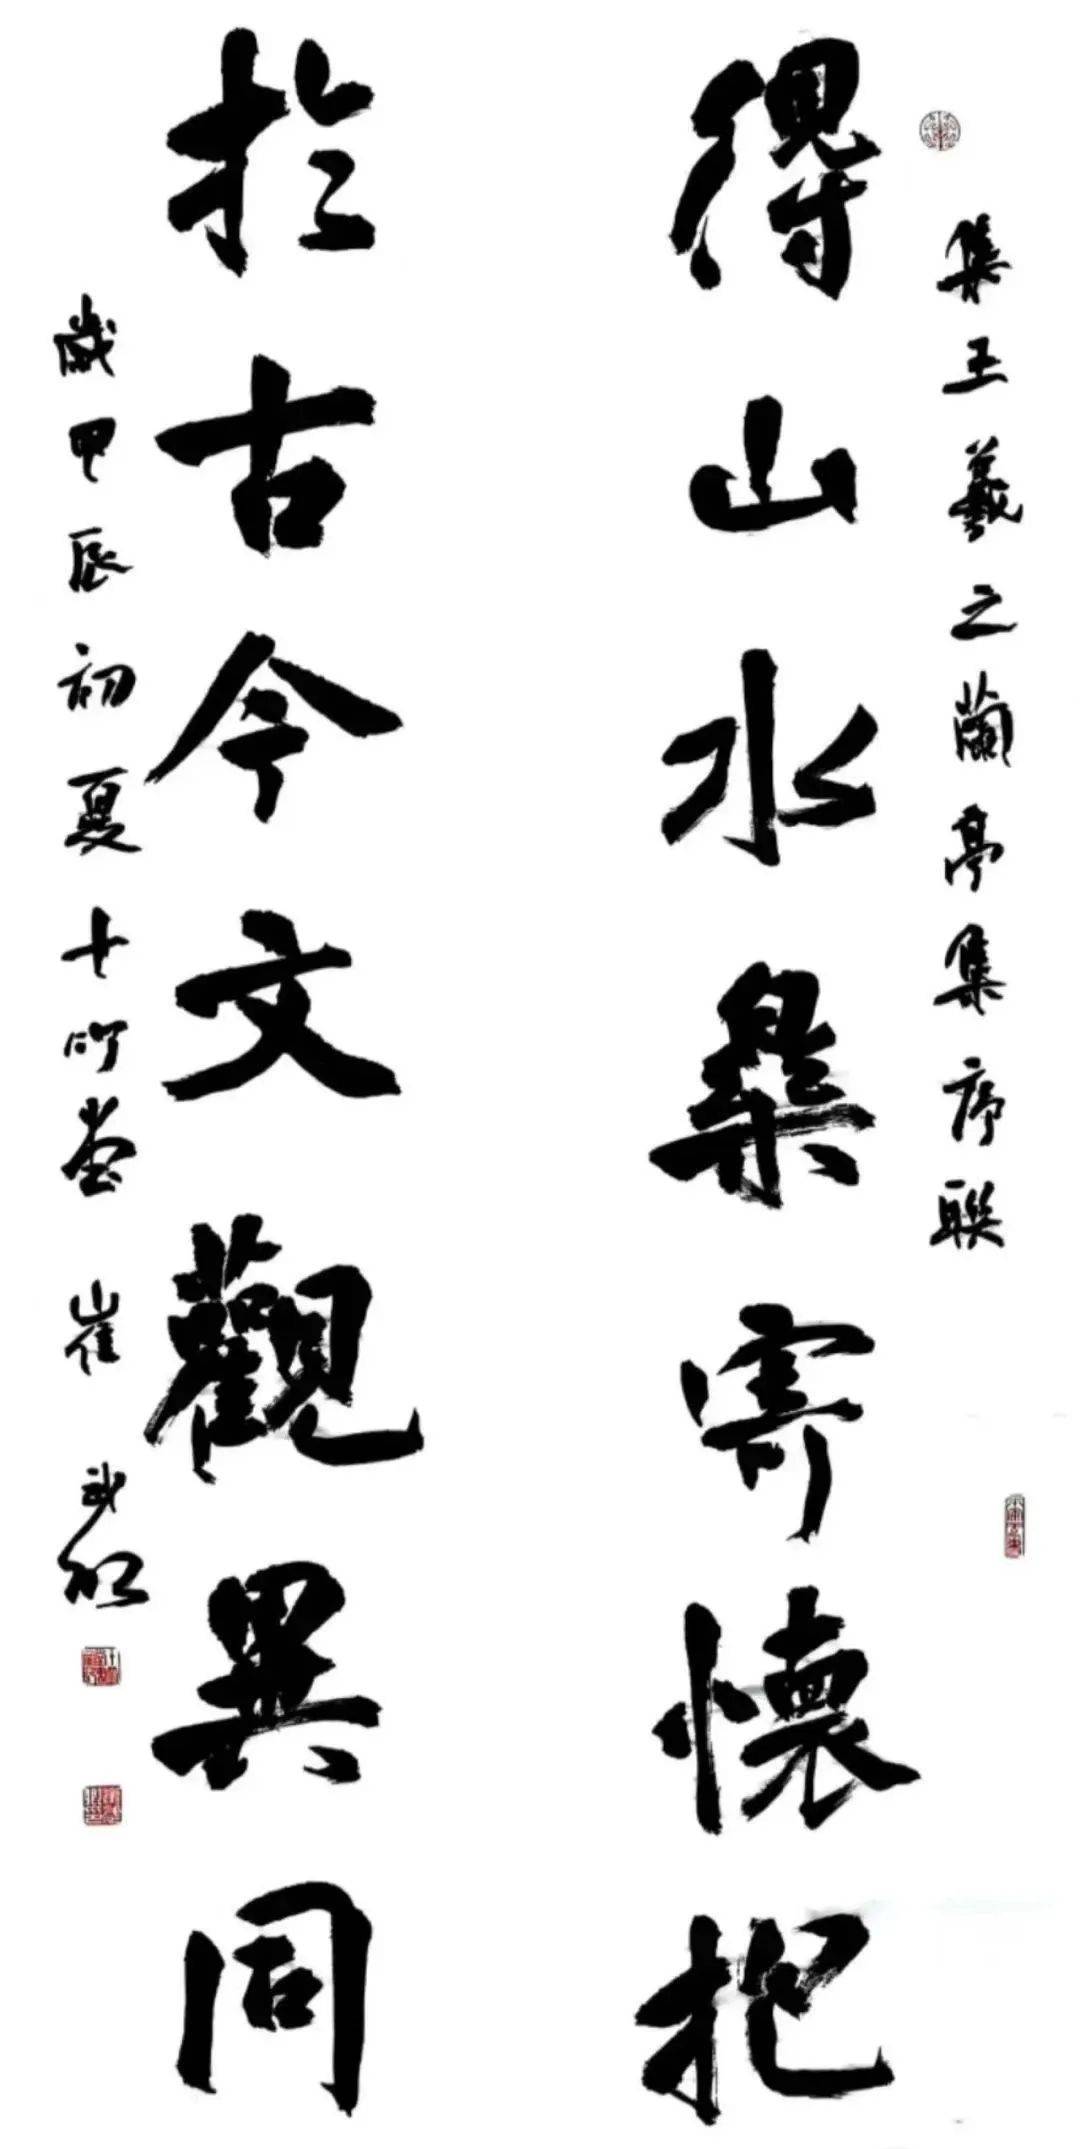 集王羲之蘭亭集序聯
得山水樂寄懷抱
於古今文觀異同
歲甲辰初夏十竹堂 崔武